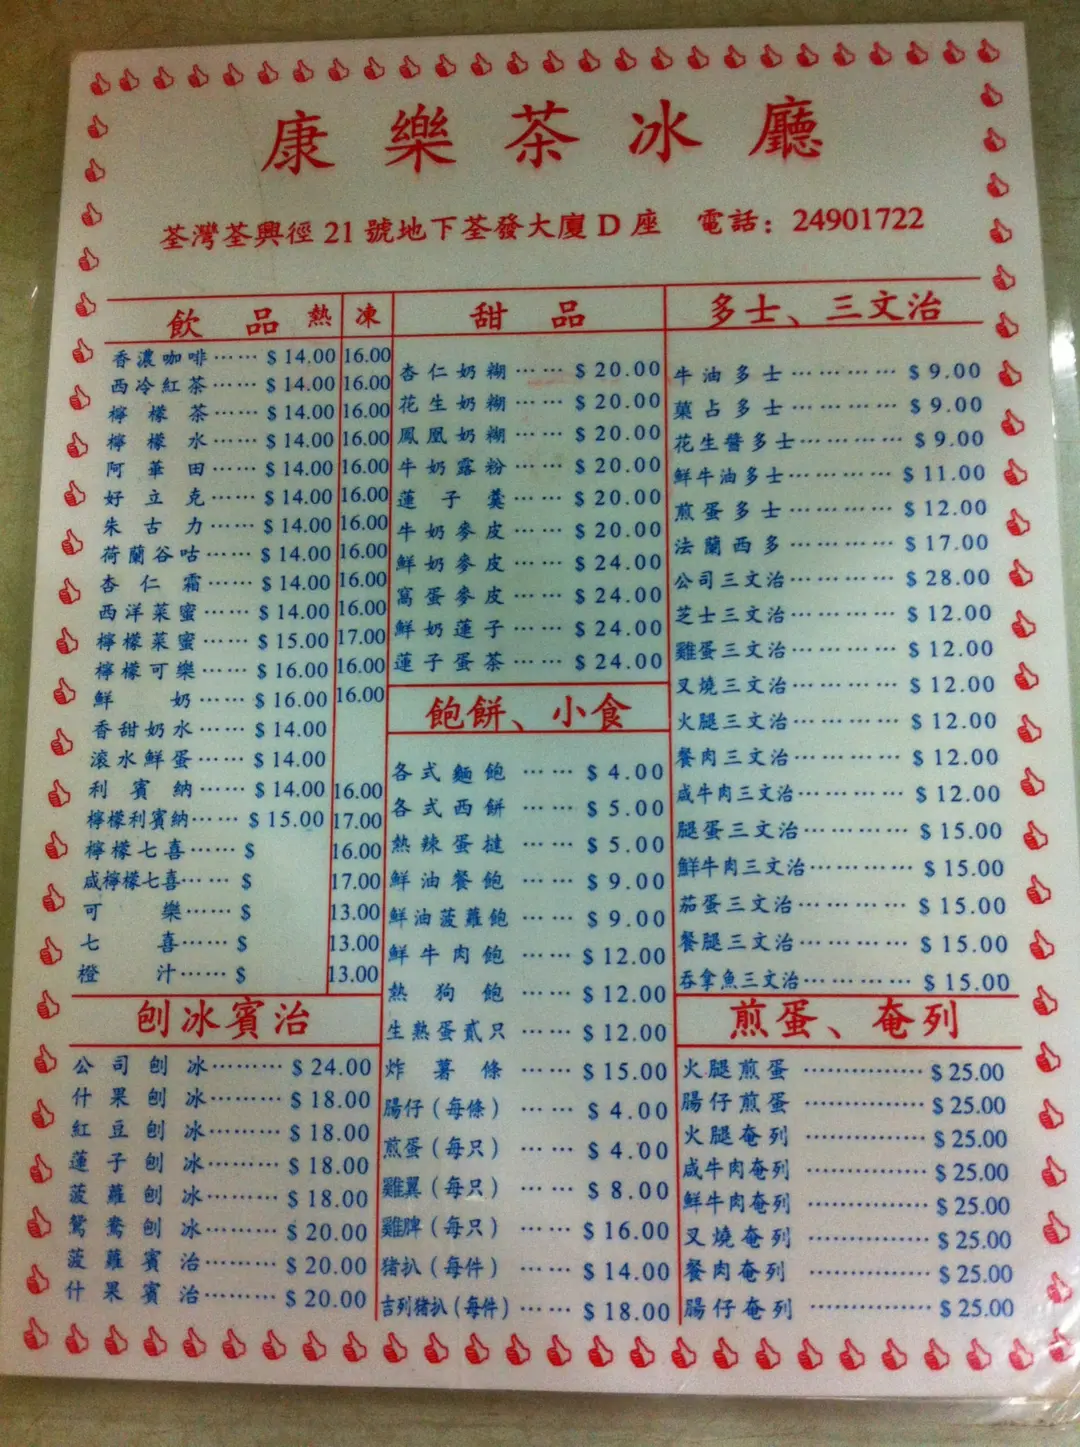 康樂茶冰廳
荃灣荃興徑 21 號地下荃發大廈 D 座 電話: 24901722
飲品 熱 凍
香濃咖啡…… $ 14.00 16.00
西冷紅茶…… $ 14.00 16.00
檸檬茶…… $ 14.00 16.00
檸檬水…… $ 14.00 16.00
阿華田…… $ 14.00 16.00
好立克…… $ 14.00 16.00
朱古力…… $ 14.00 16.00
荷蘭谷咕…… $ 14.00 16.00
杏仁霜…… $ 14.00 16.00
西洋菜蜜…… $ 14.00 16.00
檸檬菜蜜…… $ 15.00 17.00
檸檬可樂…… $ 16.00 16.00
鮮奶…… $ 16.00 16.00
香甜奶水…… $ 14.00
滾水鮮蛋…… $ 14.00
利賓納…… $ 14.00 16.00
檸檬利賓納…… $ 15.00 17.00
檸檬七喜…… $ 16.00
咸檸檬七喜…… $ 17.00
可樂…… $ 13.00
七喜…… $ 13.00
橙汁…… $ 13.00
刨冰賓治
公司刨冰……… $ 24.00
什果刨冰……… $ 18.00
紅豆刨冰……… $ 18.00
蓮子刨冰……… $ 18.00
菠蘿刨冰……… $ 18.00
鴛鴦刨冰……… $ 20.00
菠蘿賓治……… $ 20.00
什果賓治……… $ 20.00
甜品
杏仁奶糊…… $ 20.00
花生奶糊…… $ 20.00
鳳凰奶糊…… $ 20.00
牛奶露粉…… $ 20.00
蓮子羹…… $ 20.00
牛奶麥皮…… $ 20.00
鮮奶麥皮…… $ 24.00
窩蛋麥皮…… $ 24.00
鮮奶蓮子…… $ 24.00
蓮子蛋茶…… $ 24.00
飽餅、小食
各式麵飽…… $ 4.00
各式西餅…… $ 5.00
熱辣蛋撻…… $ 5.00
鮮油餐飽…… $ 9.00
鮮油菠蘿飽…… $ 9.00
鮮牛肉飽…… $ 12.00
熱狗飽…… $ 12.00
生熟蛋貳只…… $ 12.00
炸薯條…… $ 15.00
腸仔(每條)…… $ 4.00
煎蛋(每只)…… $ 4.00
雞翼(每只)…… $ 8.00
雞脾(每只)…… $ 16.00
猪扒(每件)…… $ 14.00
吉列猪扒(每件)…… $ 18.00
多士、三文治
牛油多士………… $ 9.00
菓占多士………… $ 9.00
花生醬多士………… $ 9.00
鮮牛油多士………… $ 11.00
煎蛋多士………… $ 12.00
法蘭西多………… $ 17.00
公司三文治………… $ 28.00
芝士三文治………… $ 12.00
雞蛋三文治………… $ 12.00
叉燒三文治………… $ 12.00
火腿三文治………… $ 12.00
餐肉三文治………… $ 12.00
咸牛肉三文治………… $ 12.00
腿蛋三文治………… $ 15.00
鮮牛肉三文治………… $ 15.00
茄蛋三文治………… $ 15.00
餐腿三文治………… $ 15.00
吞拿魚三文治………… $ 15.00
煎蛋、奄列
火腿煎蛋…………… $ 25.00
腸仔煎蛋…………… $ 25.00
火腿奄列…………… $ 25.00
咸牛肉奄列…………… $ 25.00
鮮牛肉奄列…………… $ 25.00
叉燒奄列…………… $ 25.00
餐肉奄列…………… $ 25.00
腸仔奄列…………… $ 25.00